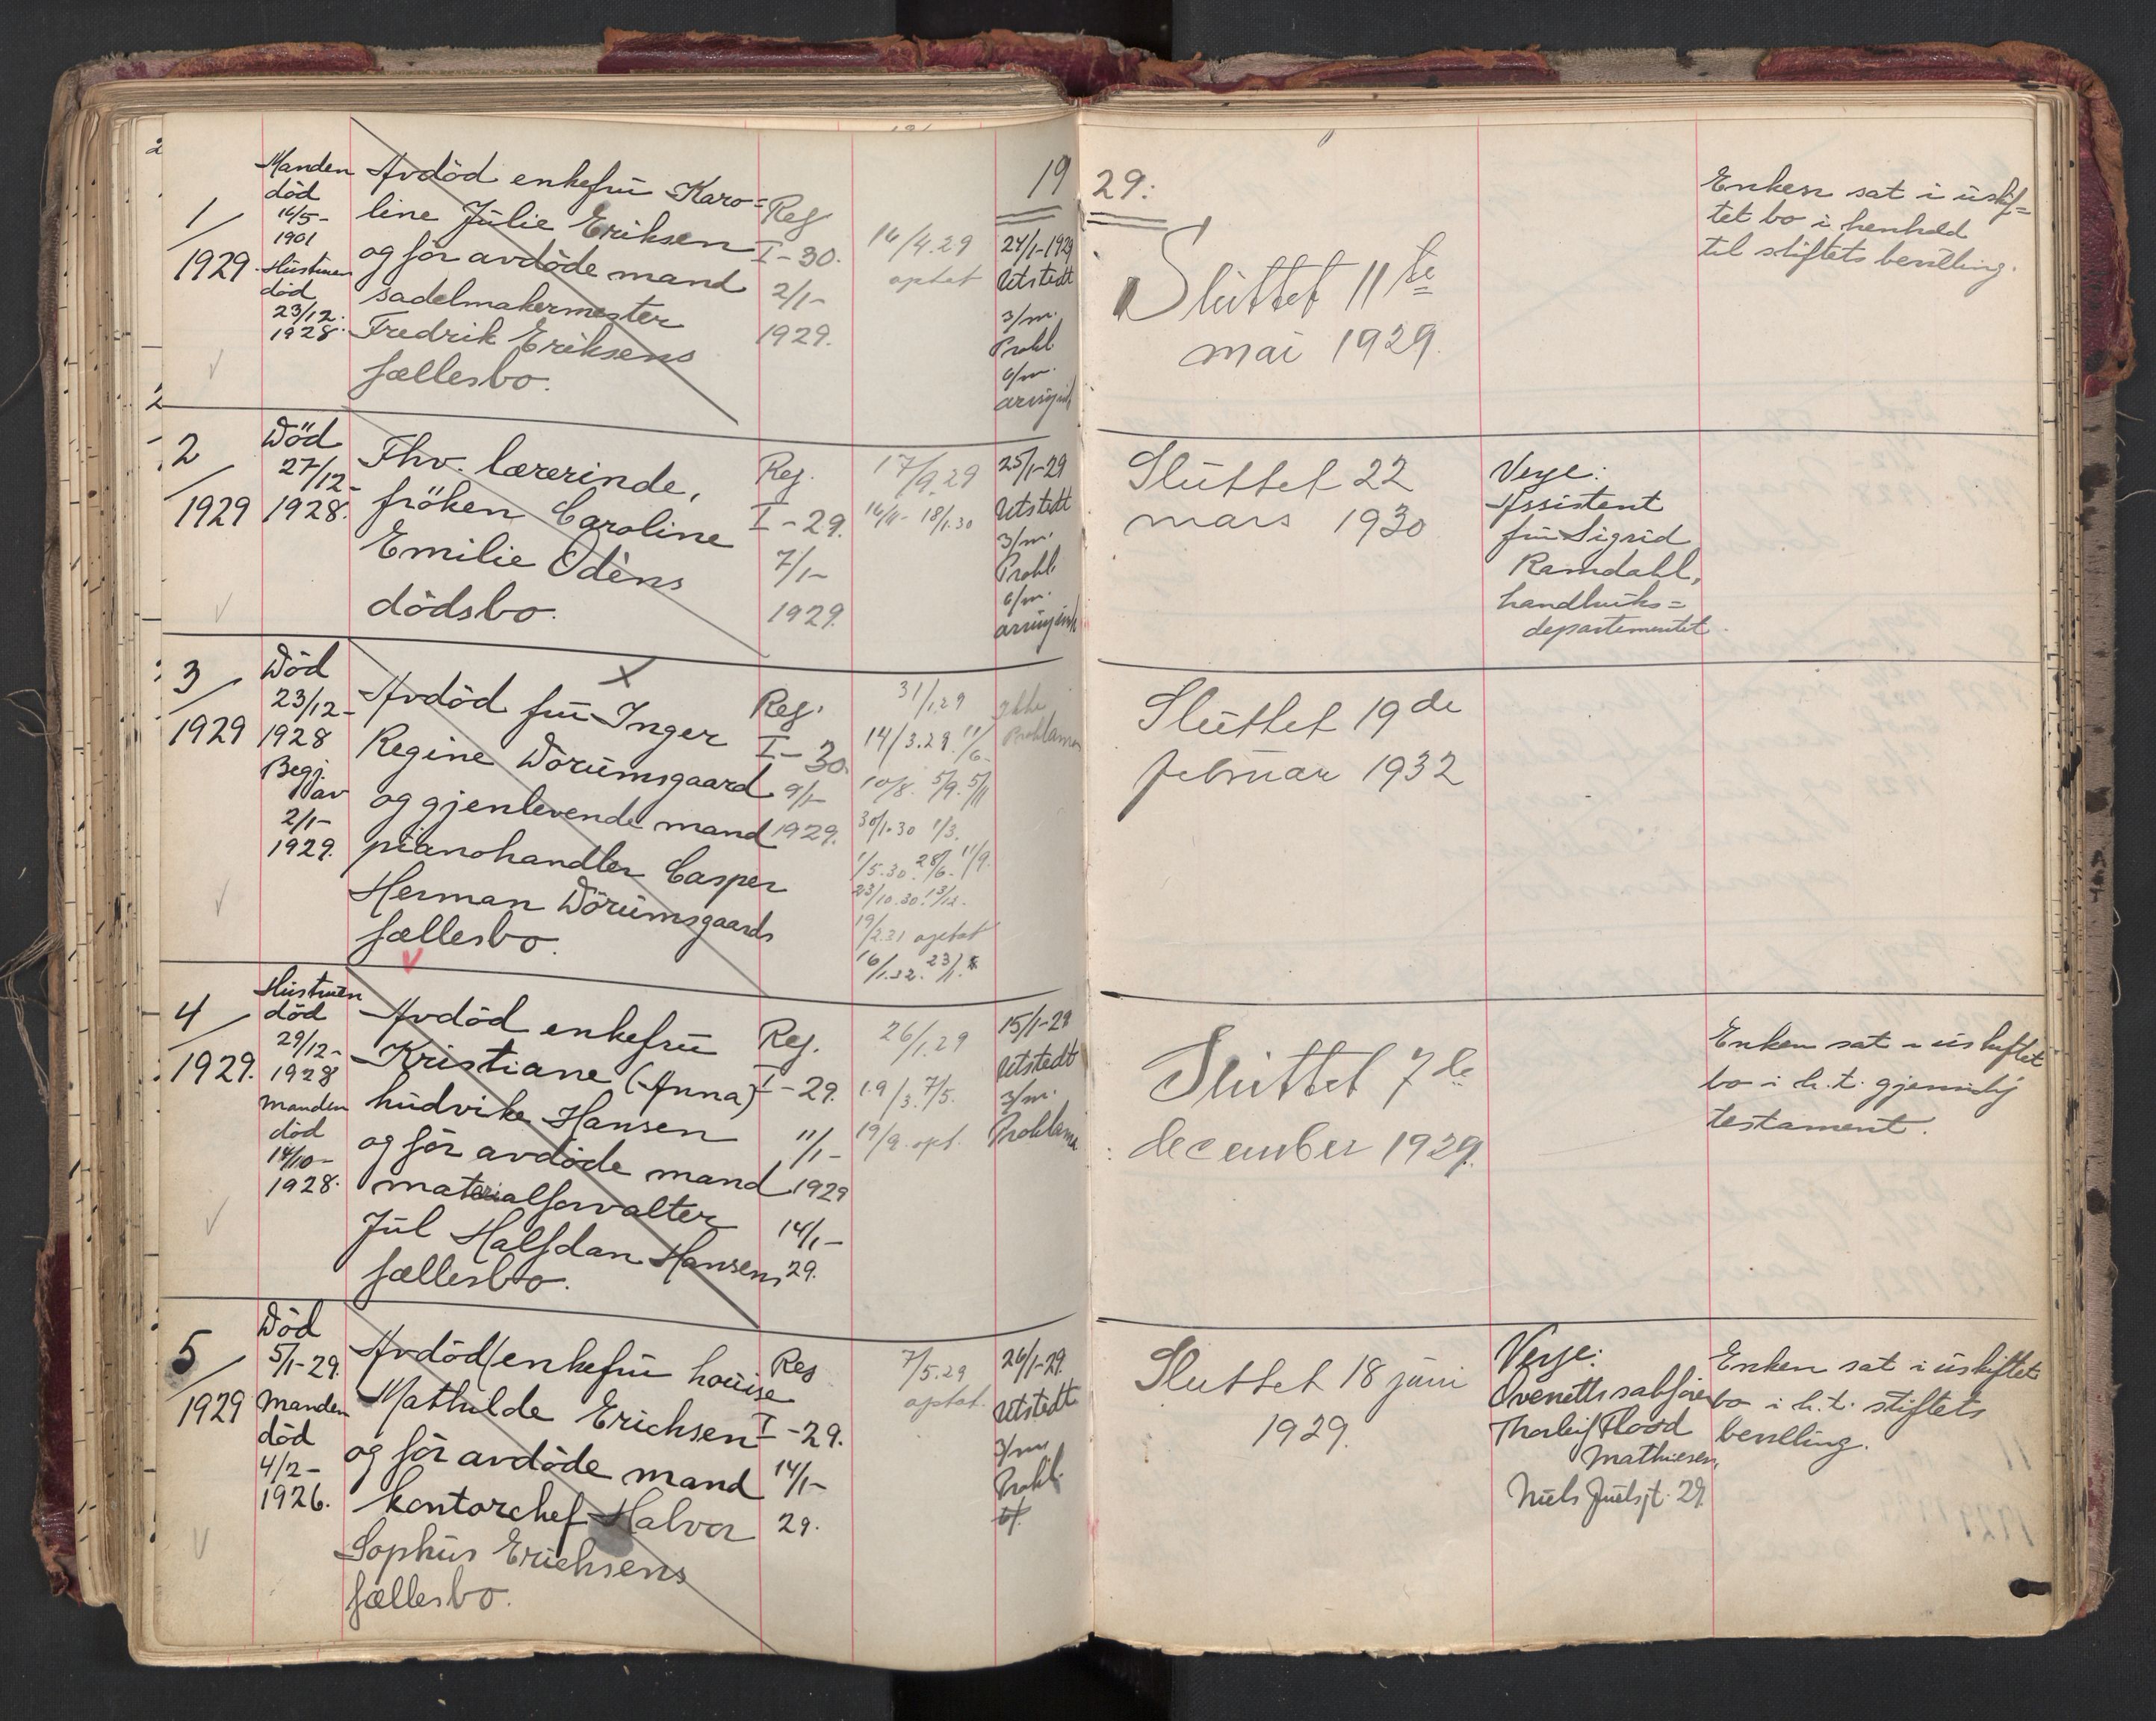 19 29:
1/1929.
Manden
död
14/5-
1901
Hustruen
död
23/12.
1928.
Avdöd enkefru Karo=
line Julie Eriksen
og för avdöde mand
sadelmakermester
Fredrik Eriksens
fællesbo.
Reg
I-30.
2/1-
1929.
16/4.29
optat
24/1-1929
Utstedt
3/m.
Prokl
6/m.
Sluttet 11te
mai 1929.
Enken sat i uskif=
tet bo i henhold
til stiftets bevilling.
2/1929
Död
27/12-
1928.
Fhv. lærerinde,
fröken Caroline
Emilie Odèns
dödsbo.
Reg.
I-29.
7/1-
1929.
17/9.29
18/1.30
25/1-29
Utstedt
3/m.
Prokl
6/m.
Sluttet 22
mars 1930
Verge:
Assistent
fru Sigrid
Ramdahl,
departementet.
3/1929
Död
23/12-
1928
Begj.
av
2/1-
1929.
Avdöd fru Inger
Regine Dörumsgaard
og gjenlevende mand
pianohandler Casper
Herman Dörumsgaards
fællesbo.
Reg.
I-30.
9/1-
1929.
31/1.29
14/3.29. 11/6-
10/8. 5/9. 5/11
30/1.30 1/3.
1/5.30. 28/6- 11/9.
23/10.30. 13/12.
19/2.31 optat
16/1.32. 23/1.
Ikke
Proklama
Sluttet 19de
februar 1932
4/1929.
Hustruen
död
29/12-
1928
Manden
död
14/10-
1928.
Avdöd enkefru
Kristiane (Anna)
Ludvike Hansen
og för avdöde mand
materialforvalter
Jul Halfdan Hansens
fællesbo.
Reg.
I-29.
11/1-
1929
14/1-
29.
26/1.29
19/3. 7/5.
19/9. opt.
15/1-29
Utstedt
3/m.
Proklama
Sluttet 7de
december 1929.
Enken sat i uskiftet
bo i h.t. gjensidig
testament.
5/1929
Död
5/1-29.
Manden
död
4/2-
1926.
Avdöd enkefru Louise
Mathilde Erichsen
og för avdöde mand
kontorchef Halvor
Sophus Erichsens
fællesbo.
Reg
I-29.
14/1-
29.
7/5.29
optat.
26/1-29.
Utstedt
3/m
Prokl.
Sluttet 18 juni
1929.
Verge:
Overettssakförer
Thorleif Flood
Mathiesen,
Niels Juelsgt. 29
Enken sat i uskiftet
bo i h.t. stiftets
bevilling.